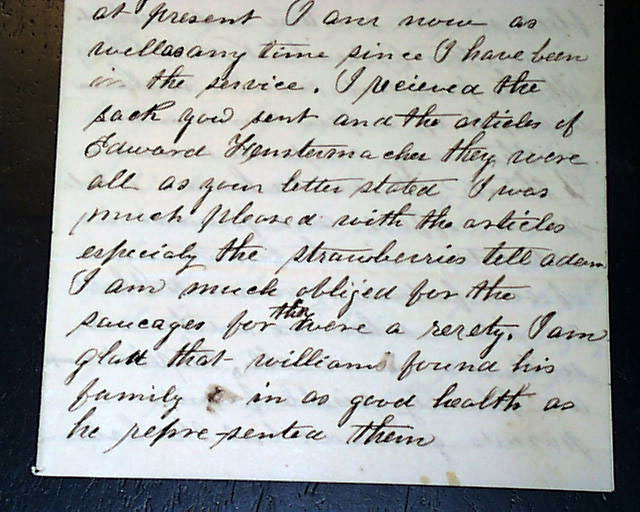 at present I am now as
well as any time since I have been
in the service. I recieved the
sack you sent and the articles of
Edward Fenstermacher they were
all as your letter stated I was
much pleased with the articles
especialy the strawberries tell adam
I am much obliged for the
saucages for they were a rerety. I am
glad that williams found his
family in as good health as
he repre-sented them